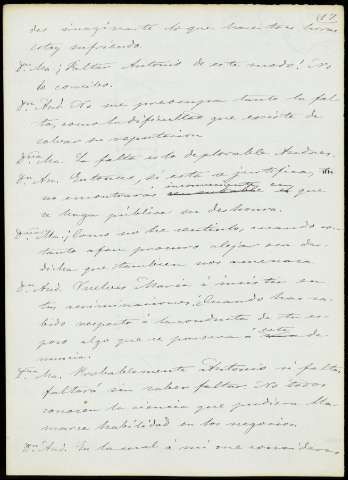 17
des imaginarte lo que hace tres horas
estoy sufriendo.
Dª Ma. ¡Faltar Antonio de este modo! No
lo concibo.
Dn And. No me preocupa tanto la fal-
ta, como la dificultad que existe de
salvar su reputacion
Dña Ma. La falta es lo deplorable Andres.
Dn An. Entonces, si esta se justifica, no
no encontrarás inconveniente en que
se haga pública su deshonra.
Dña Ma. ¡Como no he sentirlo, cuando con
tanto afan procuro alejar esa des-
dicha que tambien nos amenaza
Dn And. Vuelves Maria á insistir en
tus recriminaciones. ¿Cuando has sa-
bido respecto á la conducta de tu es-
poso algo que se parezca á esta de-
nuncia.
Dña Ma. Probablemente Antonio si falta,
faltará sin saber faltar. No todos
conocen la ciencia que pudiera lla-
marse habilidad en los negocios.
Dn And. En la cual á mi me consideras